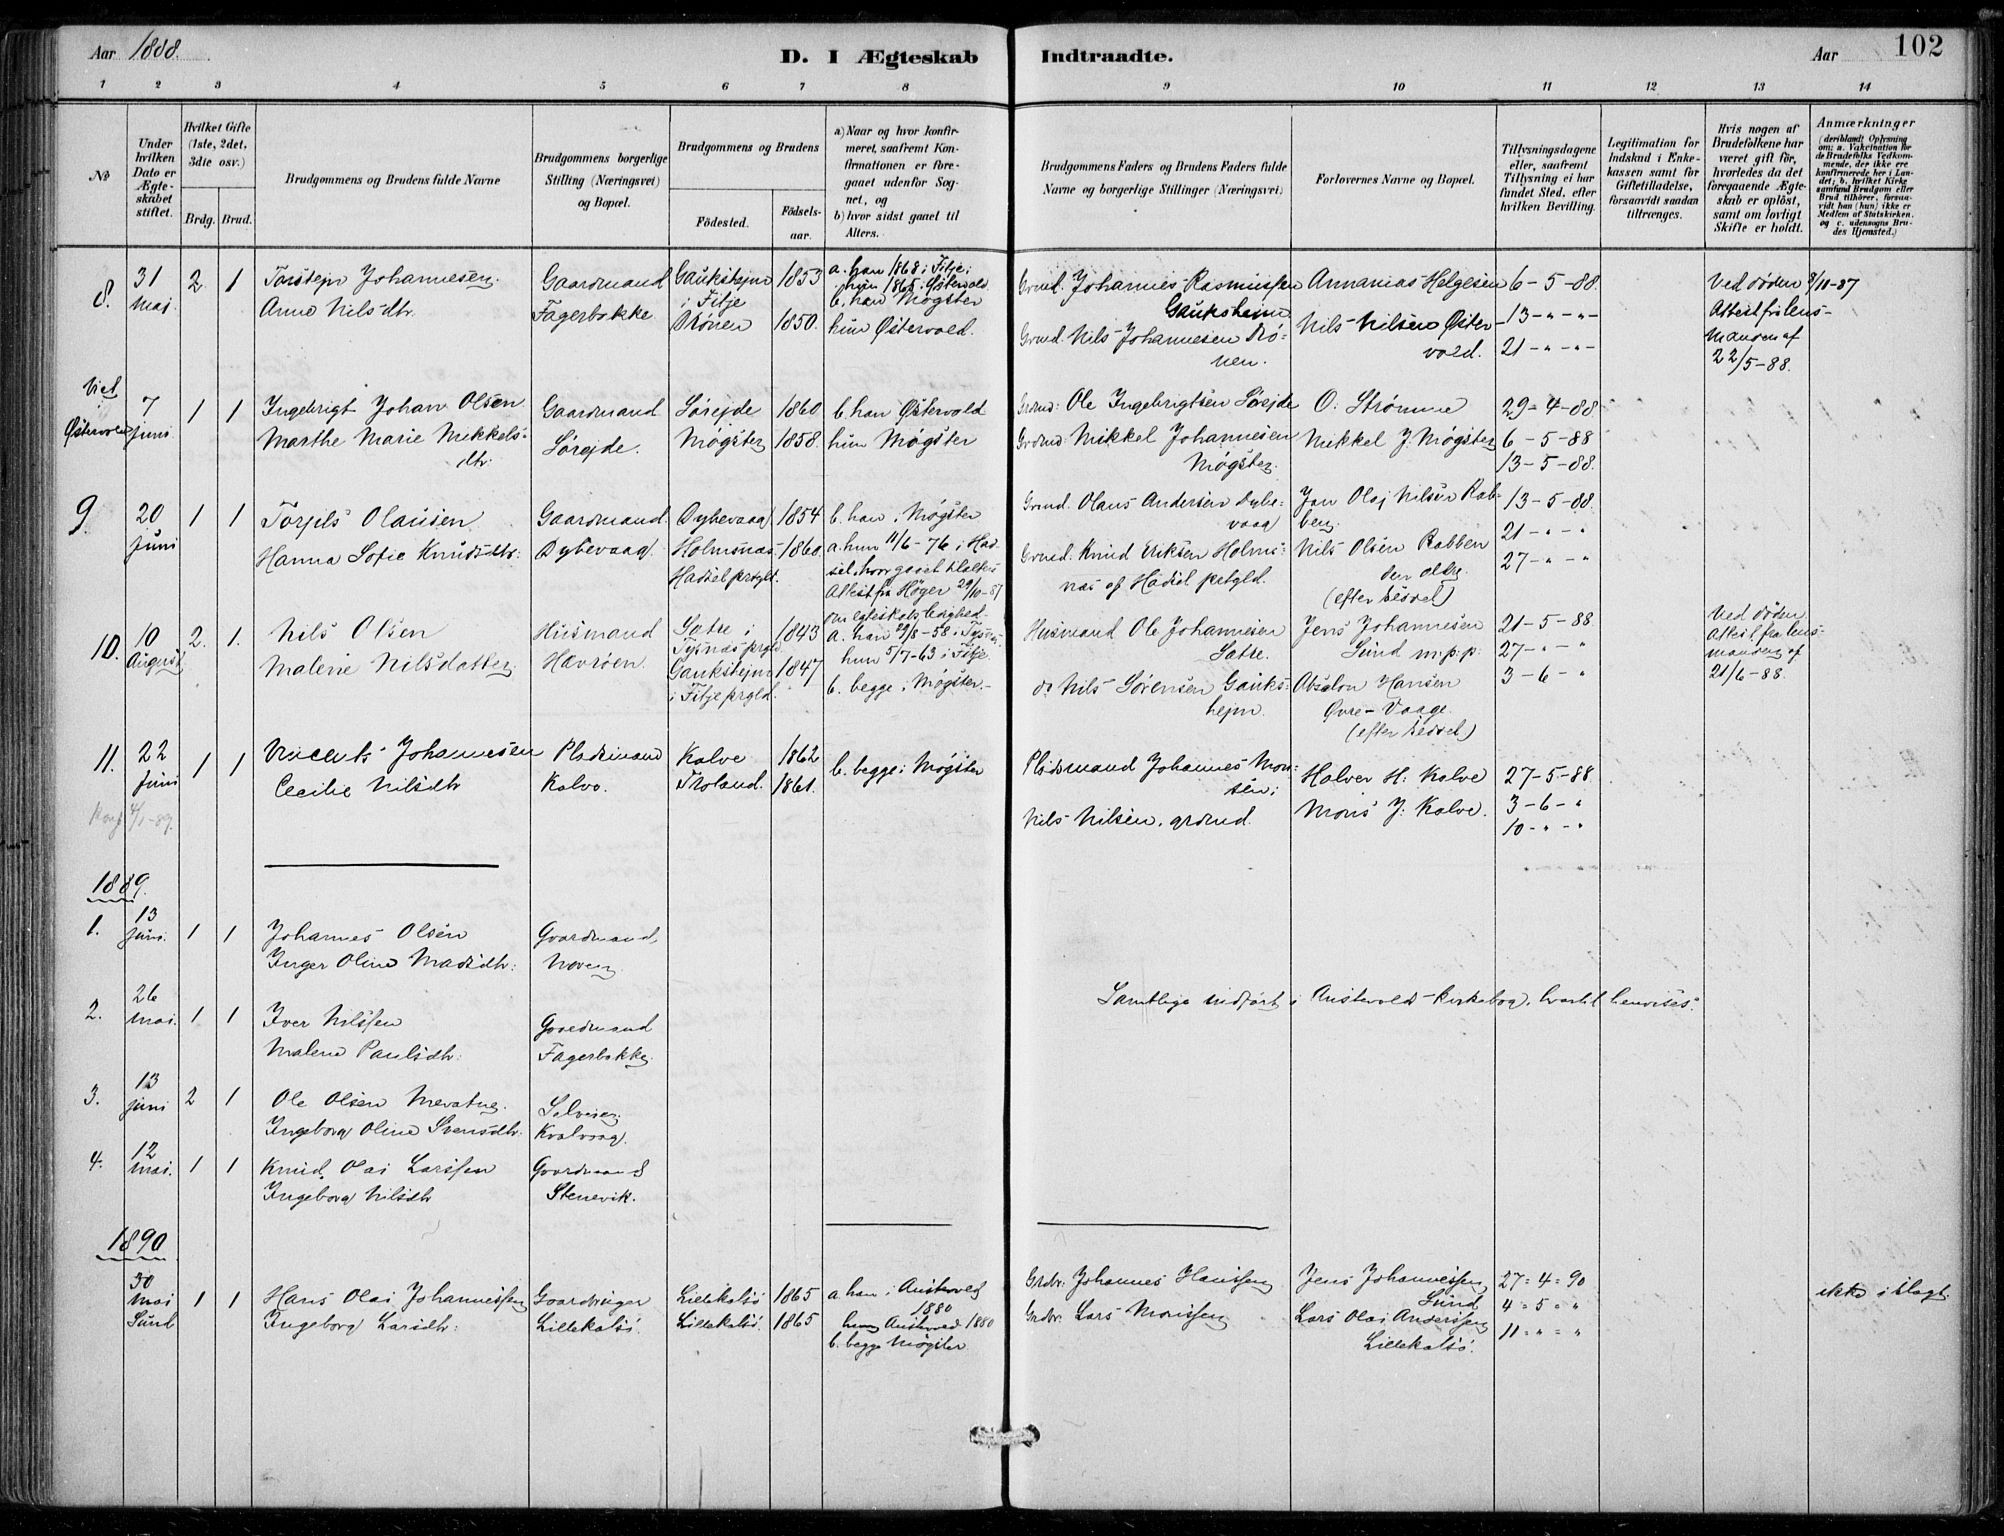 Aar 1888.
D. I Ægteskab Indtraadte.
Aar
102
1 2 3 4 5 6 7 8 9 10 11 12 13 14
№
Under hvilken Dato er Ægteskabet stiftet.
Hvilket Gifte (1ste, 2det, 3die osv.)
Brdg. Brud.
Brudgommens og Brudens fulde Navne
Brudgommens borgerlige Stilling (Næringsvei) og Bopæl.
Brudgommens og Brudens
Födested.
Födsels-aar.
a) Naar og hvor konfirmeret, saafremt Konfirmationen er foregaaet udenfor Sognet, og
b) hvor sidst gaaet til Alters.
Brudgommens Faders og Brudens Faders fulde Navne og borgerlige Stillinger (Næringsvei)
Forlovernes Navne og Bopæl.
Tillysningsdagene eller, saafremt Tillysning ei har fundet Sted, efter hvilken Bevilling.
Legitimation for Indskud i Enkekassen samt for Giftetilladelse, forsaavidt saadan tiltrænges.
Hvis nogen af Brudefolkene har været gift før, hvorledes da det foregaaende Ægteskab er oplöst, samt om lovligt Skifte er holdt.
Anmærkninger
(deriblandt Oplysning om: a. Vakcination for de Brudefolks Vedkommende, der ikke ere konfirmerede her i Landet; b. hvilket Kirkesamfund Brudgom eller Brud tilhörer, forsaavidt han (hun) ikke er Medlem af Statskirken, og c. udensogns Brudes Hjemsted.)
8. 31 mai 2 1
Torstejn Johannesen.
Anna Nilsdtr.
Gaardmand
Fagerbakke
Gaukshejm i Fitje 1853
Drönen 1850.
a. han 1868 i Fitje;
hun 1865 i Østervold.
b. han Møgster
hun Østervold.
Grmd. Johannes Rasmussen
Gauksheim
Grmd. Nils Johannesen Drö-
nen.
Annanias Helgesen
Nils Nilsen Øster-
vold.
6-5-88
13-"-"-
21-"-"-
Ved døden 8/10-87
Attest fra lens-
manden af
22/5-88.
Viet i Østervold 7 Juni 1 1
Ingebrigt Johan Olsen
Marthe Marie Mikkels-
dtr.
Gaardmand
Sørejde.
Sørejde 1860
Møgster 1858.
b. han Østervold
hun Møgster
Grmd: Ole Ingebrigtsen Sørejde
Grmd: Mikkel Johannesen
Møgster.
O. Strømme
Mikkel J. Møgster
29-4-88
6-5-88
13-5-88.
9. 20 Juni 1 1
Torjils Olausen
Hanna Sofie Knudsdtr.
Gaardmand.
Dybevaag.
Dybevaag 1854
Holmsnas 1860.
Hadsel prgld.
b. han i Møgster
a. hun 11/6-76 i Had-
sel, hvor gaaet til alters
Attest fra Høger 29/10-87
om egteskabs ledighed.
Grmd. Olaus Andersen Dybe-
vaag
Grmd. Knud Eriksen Holms-
nas af Hadsel prstgld.
Jon Olaj Nilsen Rab-
ben.
Nils Olsen Rabben
den eldre.
(efter seddel)
13-5-88.
21-"-"
27-"-"
10. 10 August 2. 1.
Nils Olsen
Malene Nilsdatter
Husmand
Havrøen.
Satre i Tysnæs prgld. 1843
Gaukshejm i Fitje prgld. 1847
a. han 29/8-58 i Tysnæs
hun 5/7-63 i Fitje
b. begge i Møgster.
Husmand Ole Johannesen
Satre.
do Nils Sørensen Gauks-
hejm.
Jens Johannesen
Sund m.p.p.
Absalon Hansen
Øvre-Vaage.
(efter seddel)
21-5-88.
27-"-"
3-6-"
Ved døden
Attest fra lens-
manden af
21/6-88.
11. 22 Juni 1 1
Vincents Johannesen
Cecilie Nilsdtr
Pladsmand
Kalve.
Kalve 1862
Troland. 1861.
b. begge i Møgster
Pladsmand Johannes Mon-
sen;
Nils Nilsen, grdmd.
Halver H. Kalve
Mons J. Kalve.
27-5-88.
3-6-"
10-"-"
4/1-89.
1889.
1. 13 juni. 1 1
Johannes Olsen
Inger Oline Madsdtr:
Gaardmand,
2. 26 mai. 1 1
Iver Nilssen
Malene Paulsdtr:
Gaardmand
Fagerbakke.
Samtlige indført i Austevolds Kirkebog, hvortil henvises.
3. 13 juni 2 1
Ole Olsen
Ingeborg Oline Svensdtr:
Selveier
Kvalvaag.
4. 12 mai. 1 1
Knud Olai Larssen
Ingeborg Nilsdtr
Gaardmand
Stenevik.
1890
30 Mai Sund 1 1
Hans Olai Johannessen
Ingeborg Larsdtr:
Gaardbruger
Lillekalsö.
Lillekalsö 1865
Lillekalsö. 1865
a. han i Austevold
1880
hun Austevold 1880
b. begge Møgster
Grdbr: Johannes Hanssen
Grdbr: Lars Monssen
Jens Johannessen
Sund
Lars Olai Anderssen
Lillekalsö.
27=4=90
4=5="
11="="
ikke i slagt.